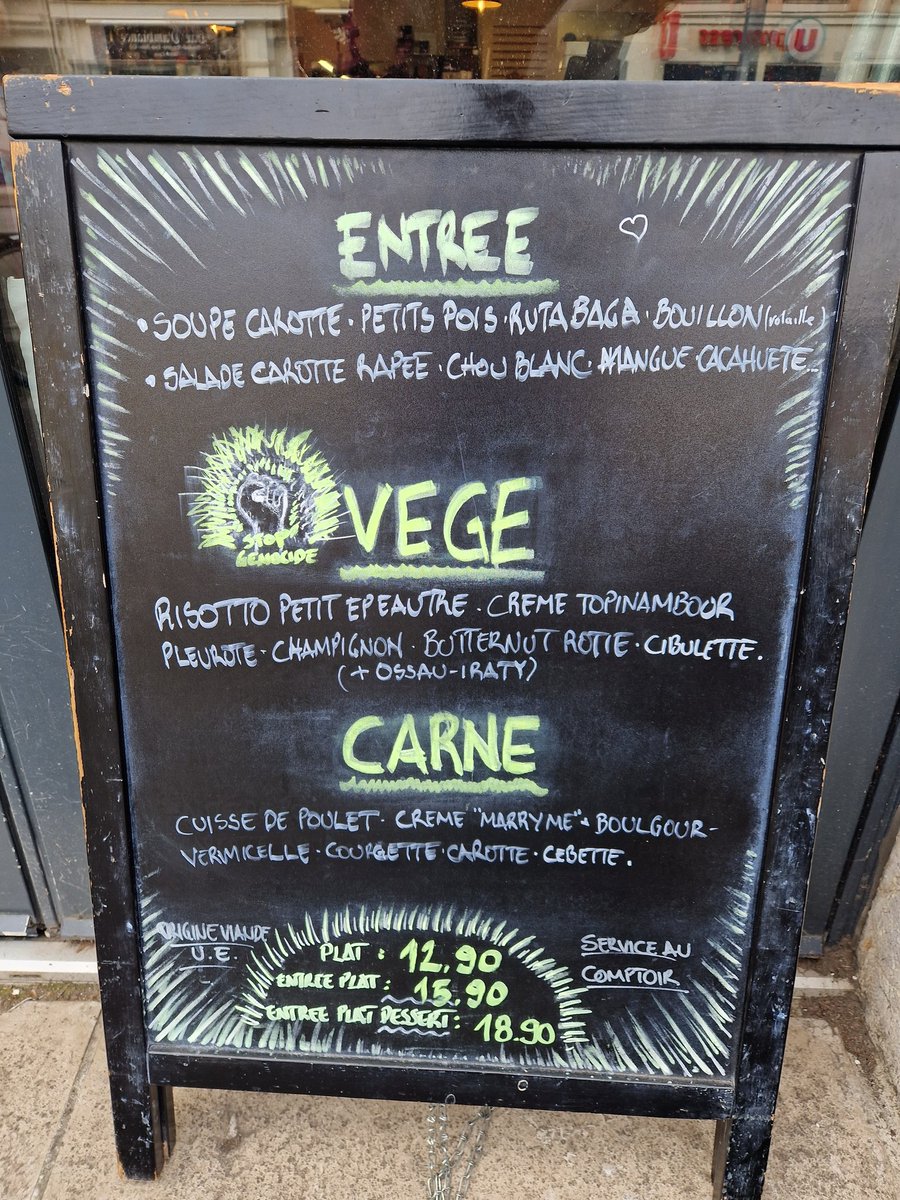 U express
ENTREE
• SOUPE CAROTTE · PETITS POIS · RUTABAGA · BOUILLON (volaille)
• SALADE CAROTTE RAPEE · CHOU BLANC · MANGUE · CACAHUETE...
STOP
GENOCIDE
VEGE
RISOTTO PETIT EPEAUTRE · CREME TOPINAMBOUR
PLEUROTE · CHAMPIGNON · BUTTERNUT ROTIE · CIBULETTE.
(+ OSSAU-IRATY)
CARNE
CUISSE DE POULET · CREME "MARRY ME" · BOULGOUR-
VERMICELLE · COURGETTE · CAROTTE · CEBETTE.
ORIGINE VIANDE
U.E.
PLAT : 12.90
ENTREE PLAT : 15.90
ENTREE PLAT DESSERT : 18.90
SERVICE AU
COMPTOIR